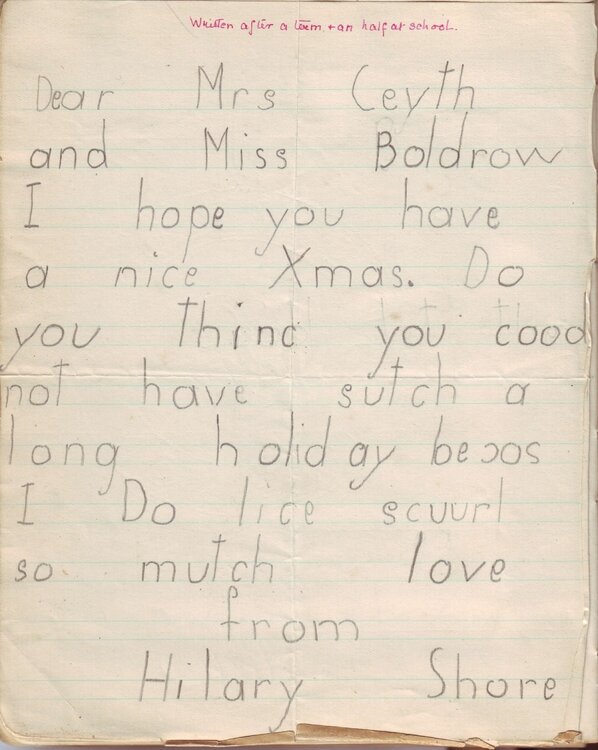 Written after a term + an half at school.
Dear Mrs Ceyth
and Miss Boldrow
I hope you have
a nice Xmas. Do
you thinc you cood
not have sutch a
long holiday becos
I Do lice scuurl
so mutch love
from
Hilary Shore